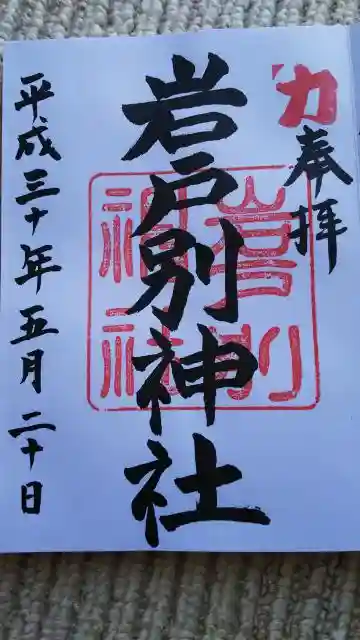 力
奉拝
岩戸別神社
岩戸別
神社
平成三十年五月二十日